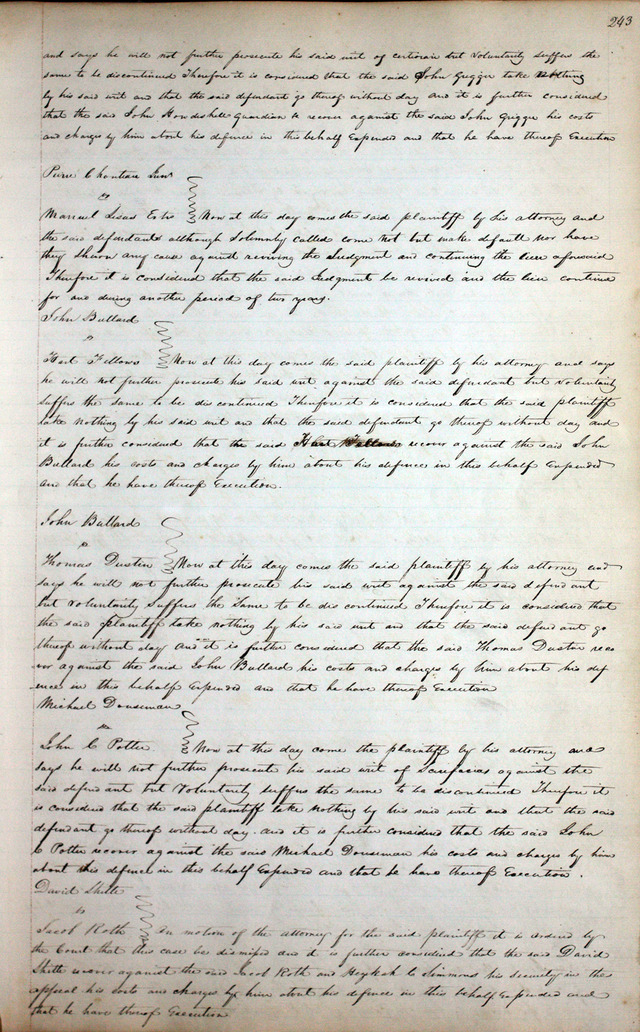 243
and says he will not further prosecute his said writ of certiorari but Voluntarily suffers the
same to be discontinued Therefore it is considered that the said John Griggs take nothing
by his said writ and that the said defendant go thereof without day and it is further considered
that the said John Guardian &c recover against the said John Griggs his costs
and charges by him about his defence in this behalf Expended and that he have thereof Execution
Pierre Chouteau Junr
vs
Manuel Lisas Exts Now at this day comes the said plaintiff by his attorney and
the said defendants although Solemnly called come not but make default nor have
they shewn any cause against reviving the Judgment and continuing the lien aforesaid
Therefore it is considered that the said Judgment be revived and the lien continue
for and during another period of two years.
John Bullard
vs
Hart Fellows Now at this day comes the said plaintiff by his attorney and says
he will not further prosecute his said writ against the said defendant but Voluntarily
suffers the same to be discontinued Therefore it is considered that the said plaintiff
take nothing by his said writ and that the said defendant go thereof without day and
it is further considered that the said Hart Fellows recover against the said John
Bullard his costs and charges by him about his defence in this behalf Expended
and that he have thereof Execution.
John Bullard
vs
Thomas Dustin Now at this day comes the said plaintiff by his attorney and
says he will not further prosecute his said writ against the said defendant
but Voluntarily Suffers the Same to be discontinued Therefore it is considered that
the said plaintiff take nothing by his said writ and that the said defendant go
thereof without day and it is further considered that the said Thomas Dustin reco
ver against the said John Bullard his costs and charges by him about his def
ence in this behalf Expended and that he have thereof Execution
Michael Douseman
vs
John C Potter Now at this day come the plaintiff by his attorney and
says he will not further prosecute his said writ of Scirefacias against the
said defendant but Voluntarily suffers the same to be discontinued Therefore it
is considered that the said plaintiff take nothing by his said writ and that the said
defendant go thereof without day. and it is further considered that the said John
C Potter recover against the said Michael Douseman his costs and charges by him
about his defence in this behalf Expended and that he have thereof Execution.
David Shilts
vs
Jacob Roth On motion of the attorney for the said plaintiff it is ordered by
the Court that this case be dismissed and it is further considered that the said David
Shilts recover against the said Jacob Roth and Simmons his security in the
appeal his costs and charges by him about his defence in this behalf Expended and
that he have thereof Execution